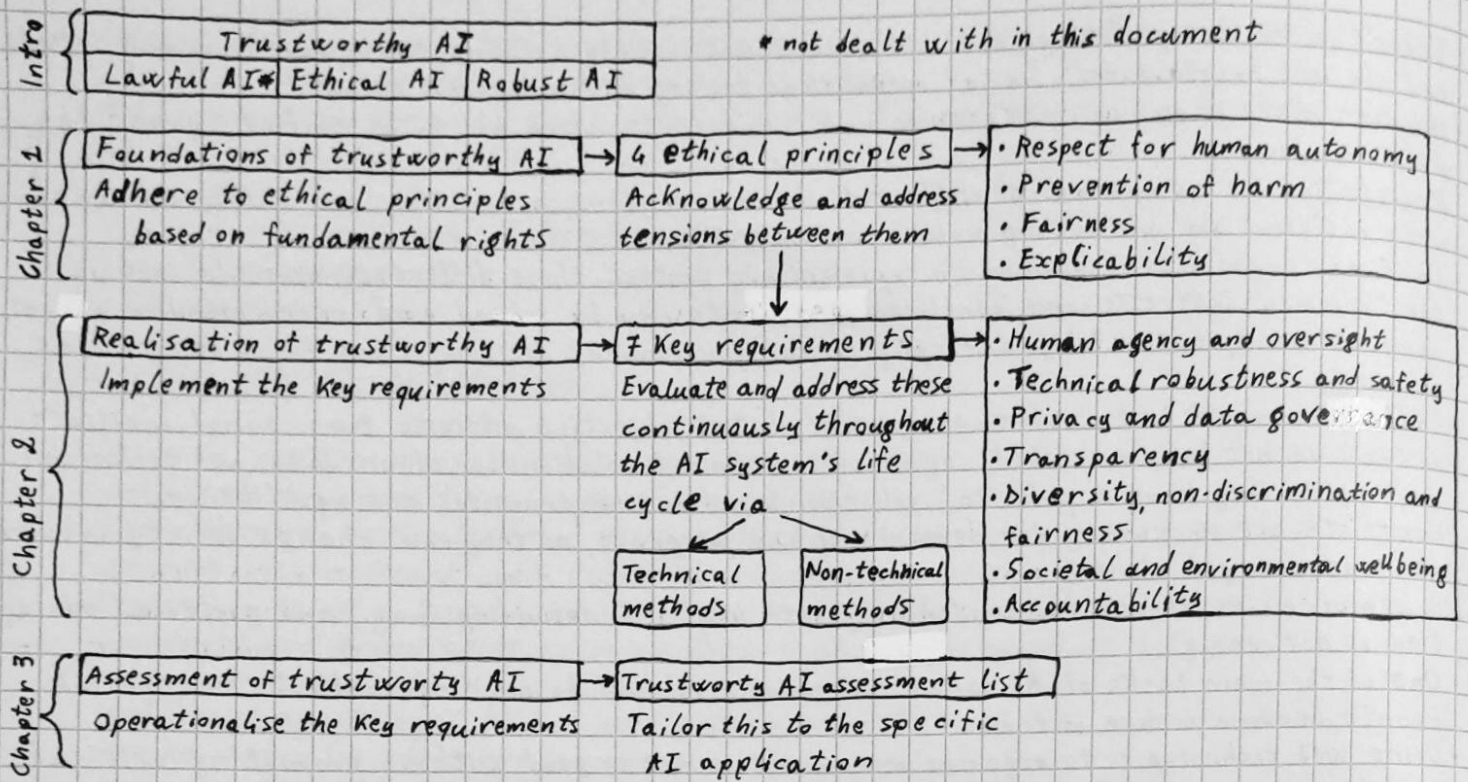 Intro
Trustworthy AI
* not dealt with in this document
Lawful AI* Ethical AI Robust AI
Chapter 1
Foundations of trustworthy AI
Adhere to ethical principles
based on fundamental rights
4 ethical principles
Acknowledge and address
tensions between them
• Respect for human autonomy
• Prevention of harm
• Fairness
• Explicability
Chapter 2
Realisation of trustworthy AI
Implement the key requirements
7 Key requirements
Evaluate and address these
continuously throughout
the AI system's life
cycle via
Technical
methods
Non-technical
methods
• Human agency and oversight
• Technical robustness and safety
• Privacy and data governance
• Transparency
• Diversity, non-discrimination and
fairness
• Societal and environmental wellbeing
• Accountability
Chapter 3
Assessment of trustworty AI
Operationalise the key requirements
Trustworty AI assessment list
Tailor this to the specific
AI application